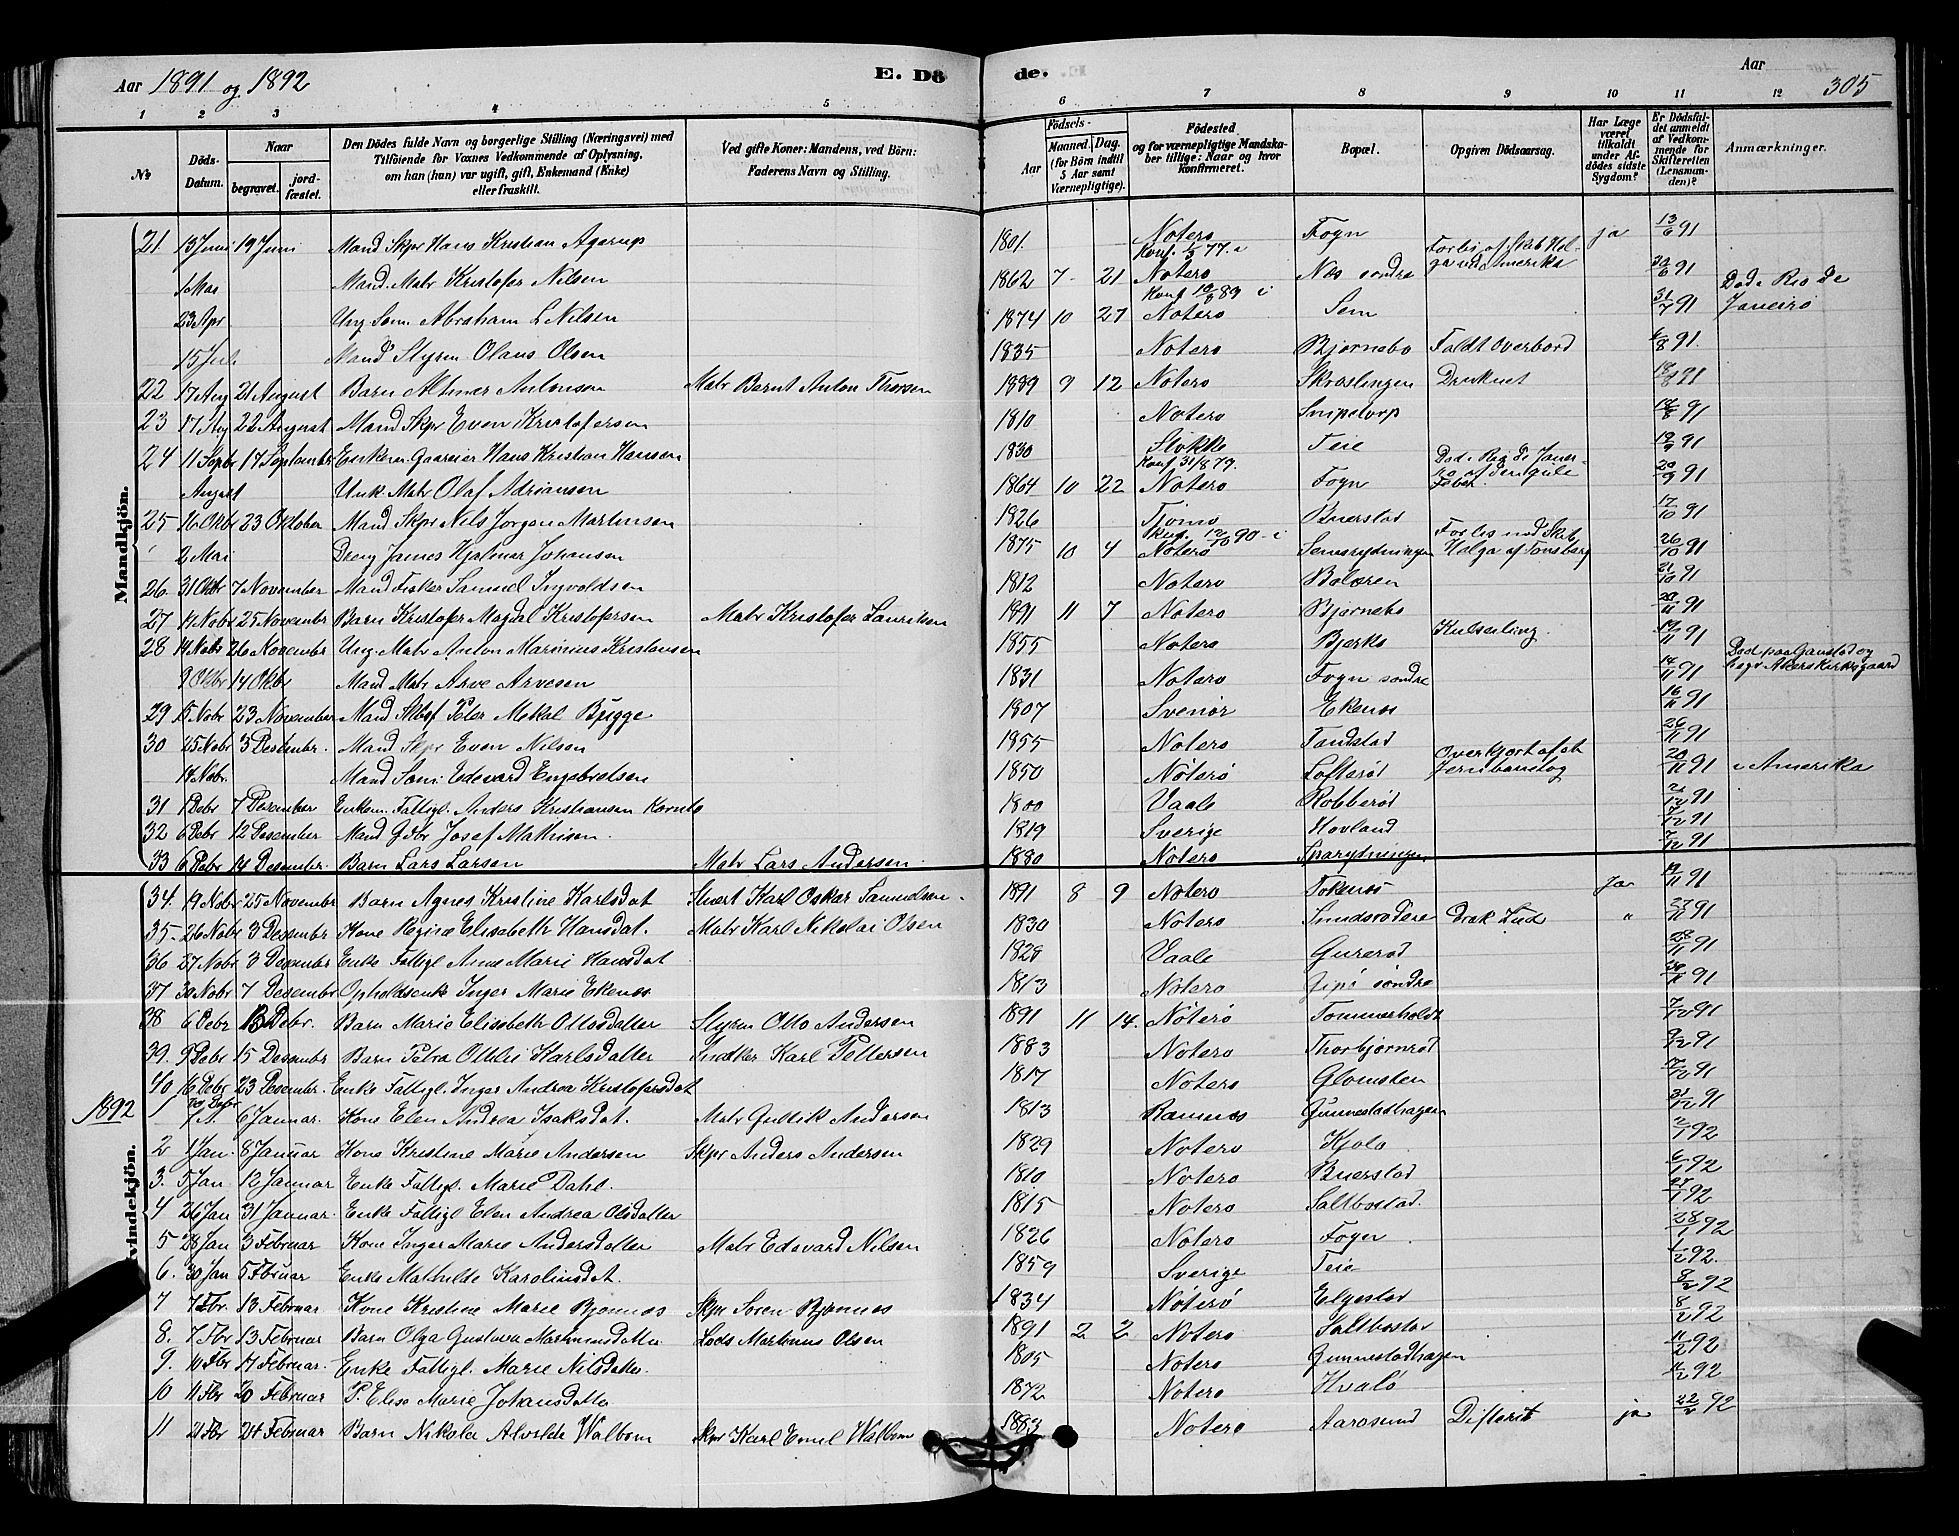 Aar 1891 og 1892 E. Dö
de. Aar 305
1 2 3 4 5 6 7 8 9 10 11 12
No
Döds-Datum.
Naar
begravet.
jord-fæstet.
Den Dödes fulde Navn og borgerlige Stilling (Næringsvei) med
Tilföiende for Voxnes Vedkommende af Oplysning,
om han (hun) var ugift, gift, Enkemand (Enke)
eller fraskilt.
Ved gifte Koner: Mandens, ved Börn:
Faderens Navn og Stilling.
Födsels-
Aar
Maaned. Dag.
(for Börn indtil
5 Aar samt
Værnepligtige).
Födested
og for værnepligtige Mandska-
ber tillige: Naar og hvor
konfirmeret.
Bopæl.
Opgiven Dödsaarsag.
Har Læge
været
tilkaldt
under Af-
dödes sidste
Sygdom?
Er Dödsfal-
det anmeldt
af Vedkom-
mende for
Skifteretten
(Lensman-
den)?
Anmærkninger.
Mandkjön.
21 13 Juni 19 Juni Mand Skpr Hans Kristian Agerup 1801. Notero Fogn ja 13/6 91
1 Mai Mand. Matr Kristofer Nilsen 1862 7 21 Konf. 77. i Notero Nes sondre Forlis af Skib Helga ved Amerika 30/6 91
23 Apr Ung Som Abraham L Nilsen 1874 10 27 Konf 89 i Notero Sem 31/7 91 Dod i Rio de Janeiro
15 Juli Mand Styrm Olaus Olsen 1835 Notero Bjornebo Faldt overbord 6/8 91.
22 17 Aug 21 August Barn Almer Antonsen Matr Bernt Anton Thorsen 1889 9 12 Notero Skraslingen Druknet 18/8 91
23 17 Aug 22 August Mand Skpr Even Kristofersen 1810 Notero Snipetorp 18/8 91
24 11 Septbr 17 Septembr Enkem. Gaareier Hans Kristian Hansen 1830 Stokke Teie 12/9 91
August Unk Matr Olaf Adriansen 1864 10 22 Konf 31/8 79. Notero Fogn Dod i Rio de Janeiro af den gule Feber 20/9 91
25 16 Oktbr 23 Oktober Mand Skpr Nils Jorgen Martinsen 1826 Tjomo Buerstad 17/10 91
2 Mai Dreng James Hjalmar Johansen 1875 10 4 90 i Notero Semsrydningen Forlis med Skib Helga af Tonsberg 26/10 91
26 31 Oktbr 7 November Mand Fisker Samuel Ingvoldsen 1812 Notero Bolæren 91
27 14 Nobr 25 Novembr Barn Kristofer Magdal Kristofersen Matr Kristofer Lauritsen 1891 11 7 Notero Bjornebo 20/11 91
28 14 Nobr 26 November Ung. Matr Anton Marinius Kristansen 1855 Notero Bjerko Hulseiling. 91
9 Oktbr 14 Oktbr Mand Matr Arve Arvesen 1831 Notero Fogn sondre 14/11 91 Dod paa Gaustad og begr Akers Kirkegaard
29 15 Nobr 23 November Mand Peter Mekal Brigge 1807 Svenør Ekenes 16/11 91
30 25 Nobr 3 Desembr. Mand Skpr Even Nilsen 1855 Notero Tandstad 26/11 91
14 Nobr. Mand Som. Edevard Engebretsen 1850 Nøterø Lofterød Overkjort af et Jernbanetog 20/11 91 i Amerika
31 1 Debr 7 Desember Enkem. Fattigl. Anders Kristiansen 1800 Vaale Robberød 2/12 91
32 6 Debr 12 Desember Mand Gdbr Josef Mathisen. 1819 Sverige Hovland 7/12 91
33 6 Debr 14 Desember. Barn Lars Larsen Matr Lars Andersen 1880 Notero 7/12 91
Kvindekjön.
34. 19 Nobr 25 Novembr Barn Agnes Kristine Karlsdat Stuert Karl Oskar Samuelsen 1891 8 9 Notero Tokenes Ja 91
35. 26 Nobr 3 Desembr Kone Regine Elisabeth Hansdat. Matr Karl Nikolai Olsen 1830 Notero " 27/11 91
36 27 Nobr 3 Desembr Enke Fattigl Anne Marie Hansdat 1828 Vaale Gurerod 28/11 91
37 30 Nobr 7 Desembr Opholdsenke Inger Marie Ekenes 1813 Notero Gipø søndre 30/11 91
38 6 Debr 13 Debr. Barn Marie Elisabeth Ottosdatter Styrm Otto Andersen 1891 11 14. Nøterø Tommerholdt 7/12 91
39. 9 Debr 15 Desembr Barn Petra Otilie Karlsdatter Snedker Karl Pettersen 1883 Notero Thorbjornrod 9/12 91
40 16 Debr 23 Desembr. Enke Fattigl. Inger Andrea Kristofersdat 1817 Notero Glomsten 17/12 91
1892
1 6 Januar. Kone Elen Andrea Isaksdat. Matr Gullik Anderson 1813 Ramnes Gunnestadhagen 31/12 91
2 1 Jan. 8 Januar Kone Kristine Marie Andersen Skpr Anders Andersen 1829 Notero Kjolo 2/1 92
3. 5 Jan 12 Januar Enke Fattigl. Marie Dahl. 1810 Notero Buerstad 6/1 92
4 26 Jan 31 Januar. Enke Fattigl Elen Andrea Olsdatter 1815 Notero Saltbostad. 27/1 92
5 28 Jan 3 Februar Kone Inger Marie Andersdatter Matr Edevard Nilsen 1826 Notero Fogn 28/1 92
6. 30 Jan 5 Fbruar Enke Mathilde Karolinsdat. 1859 Sverige Teie 1/2 92.
7 7 Fbr. 13 Februar Kone Kristine Marie Bjonnes Skpr Soren Bjonnes 1834 Nøterø Elgestad 8/2 92
8. 7 Fbr 13 Februar Barn Olga Gustava Martinusdatter Lods Martinus Olsen 1891 2 2 Notero Saltbostad 8/2 92
9. 10 Fbr 17 Februar. Enke Fattigl. Marie Nilsdatter 1805 Notero Gunnestadhagen 11/2 92
10 11 Fbr 20 Februar P. Elise Marie Johansdatter 1872 Notero Hvalø 11/2 92
11 21 Fbr 24 Februar Barn Nikola Alvilde Walbom Skpr Karl Emil Walbom 1883 Notero Aarosund Difterit ja 22/2 92